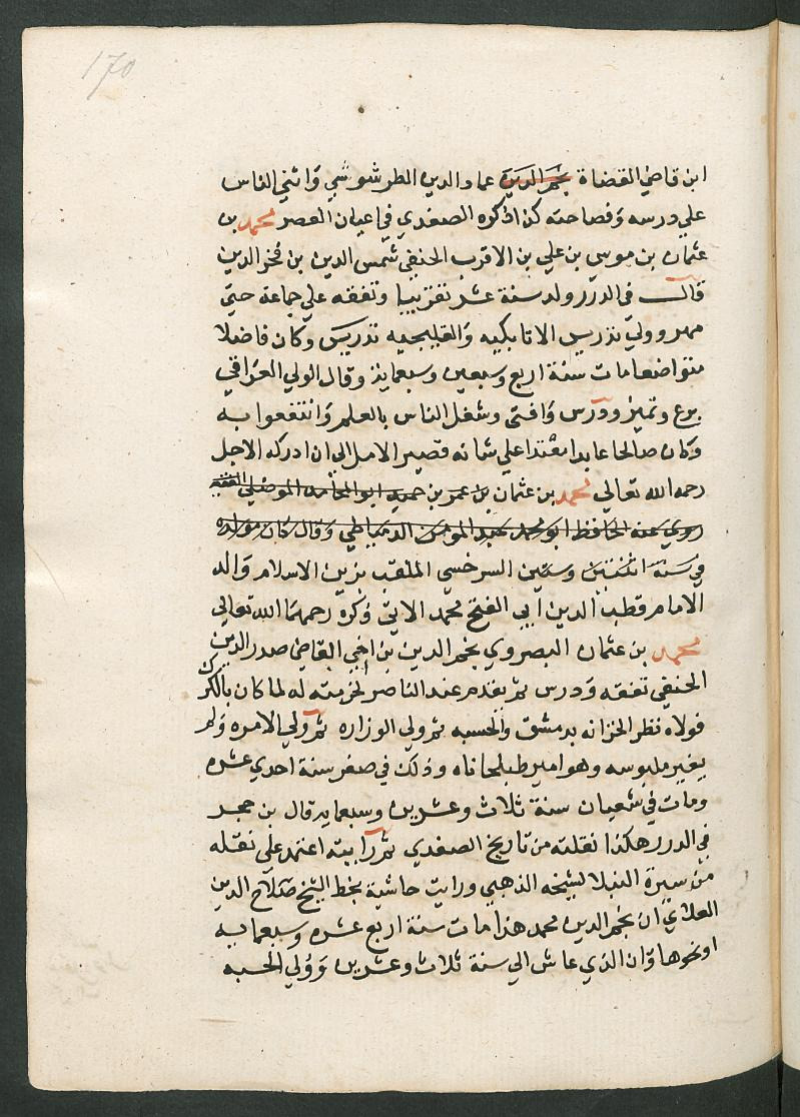 170
ابن قاضي القضاة نجم الدين عماد الدين الطرشوشي واثني الناس
علي درسه وفصاحته كذا ذكره الصفدي في اعيان العصر محمد بن
عثمان بن موسي بن علي بن الاقرب الحنفي شمس الدين بن فخر الدين
قال في الدرر ولد سنة عشر تقريبا وتفقه علي جماعة حتي
مهر وولي تدريس الاتابكيه والقليجيه تدريس وكان فاضلا
متواضعا مات سنة اربع وسبعين وسبعماية وقال الولي العراقي
برع وتميز ودرس وافتي وشغل الناس بالعلم وانتفعوا به
وكان صالحا عابدا معتدا علي شانه قصير الامل الي ان ادركه الاجل
رحمه الله تعالي محمد بن عثمان بن عمر بن حميد ابو المحامد الموصلي الفقيه
روي عنه الحافظ ابو محمد عبد المومن الدمياطي وقال كان مولده
في سنة اثنتين وستين السرخسي الملقب بزين الاسلام والد
الامام قطب الدين ابي الفتح محمد الاتي ذكره رحمهما الله تعالي
محمد بن عثمان البصروي نجم الدين بن اخي القاضي صدر الدين
الحنفي تفقه ودرس ثم تقدم عند الناصر لخدمته له لما كان بالكرك
فولاه نظر الخزانه بدمشق والحسبه ثم ولي الوزاره ثم ولي الامره ولم
يغير ملبوسه وهو امير طبلخاناه وذلك في صفر سنة احدي عشره
ومات في شعبان سنة ثلاث وعشرين وسبعمايه قال بن حجر
في الدرر هكذا نقلته من تاريخ الصفدي ثم رايته اعتمد علي نقله
من سيرة النبلا لشيخه الذهبي ورايت حاشية بخط الشيخ صلاح الدين
العلائي ان نجم الدين محمد هذا مات سنة اربع عشره وسبعمايه
او نحوها وان الذي عاش الي سنة ثلاث وعشرين وولي الحسبه